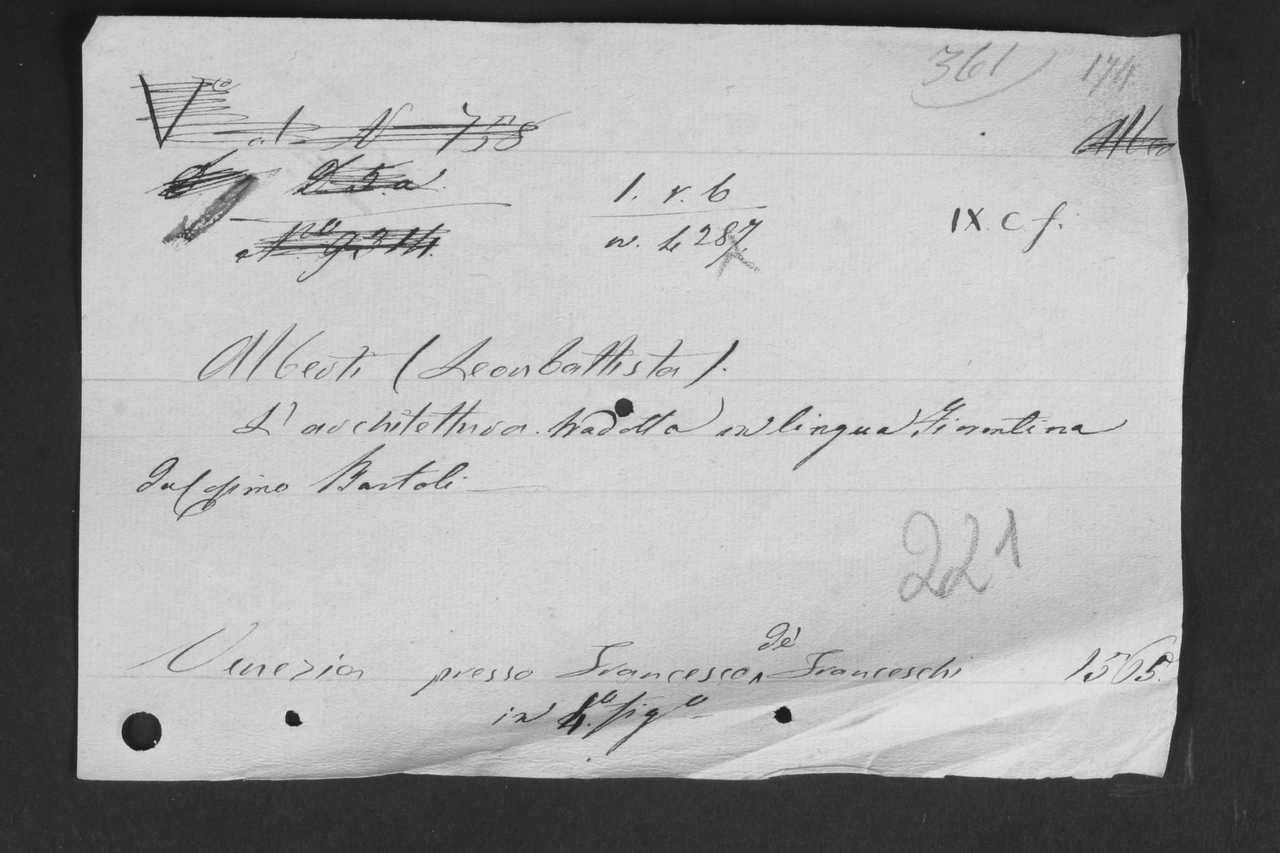 361) 174
V.co al N 758
Albe
1. r. b
n. 4287 IX. C f.
N.o
Alberti (Leonbattista).
L' architettura tradotta in lingua Fiorentina
da Cosimo Bartoli
221
Venezia presso Francesco de' Franceschi 1565.
in 4.o fig.o